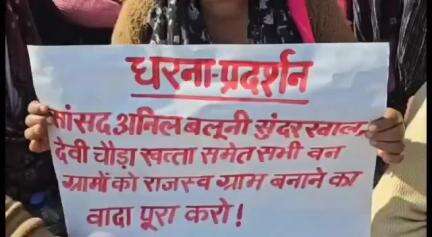 धरना-प्रदर्शन
सांसद अनिल बलूनी सुंदरखाल
देवी चौड़ा खत्ता समेत सभी वन
ग्रामों को राजस्व ग्राम बनाने का
वादा पूरा करो!